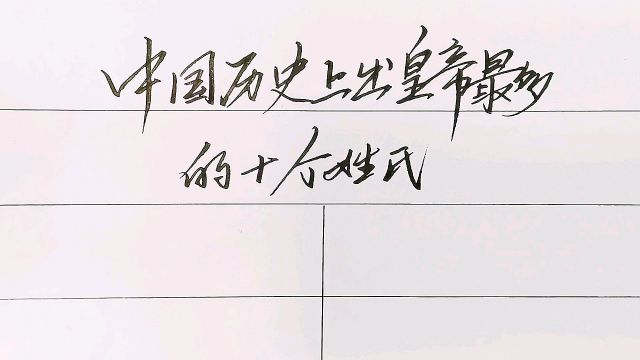 中国历史上出皇帝最多
的十个姓氏